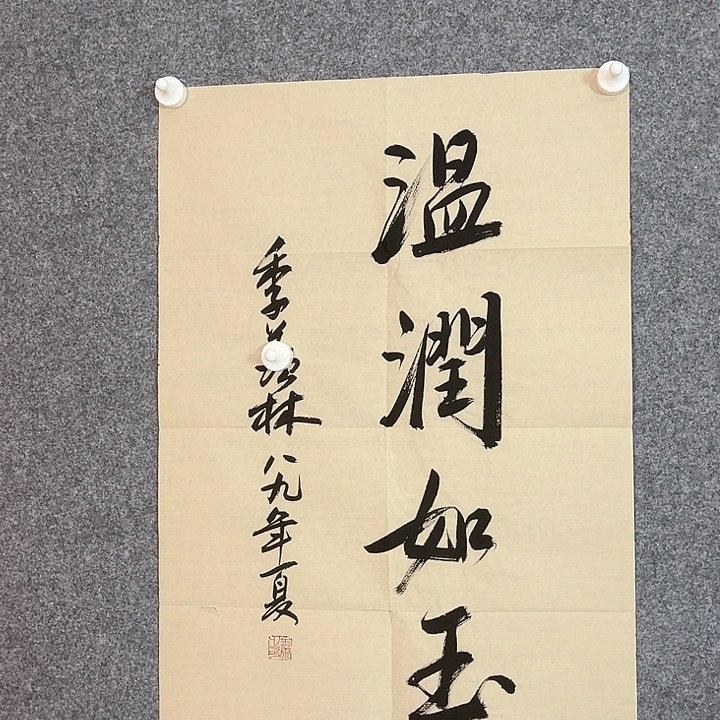 温潤如玉
季羡林八九年夏